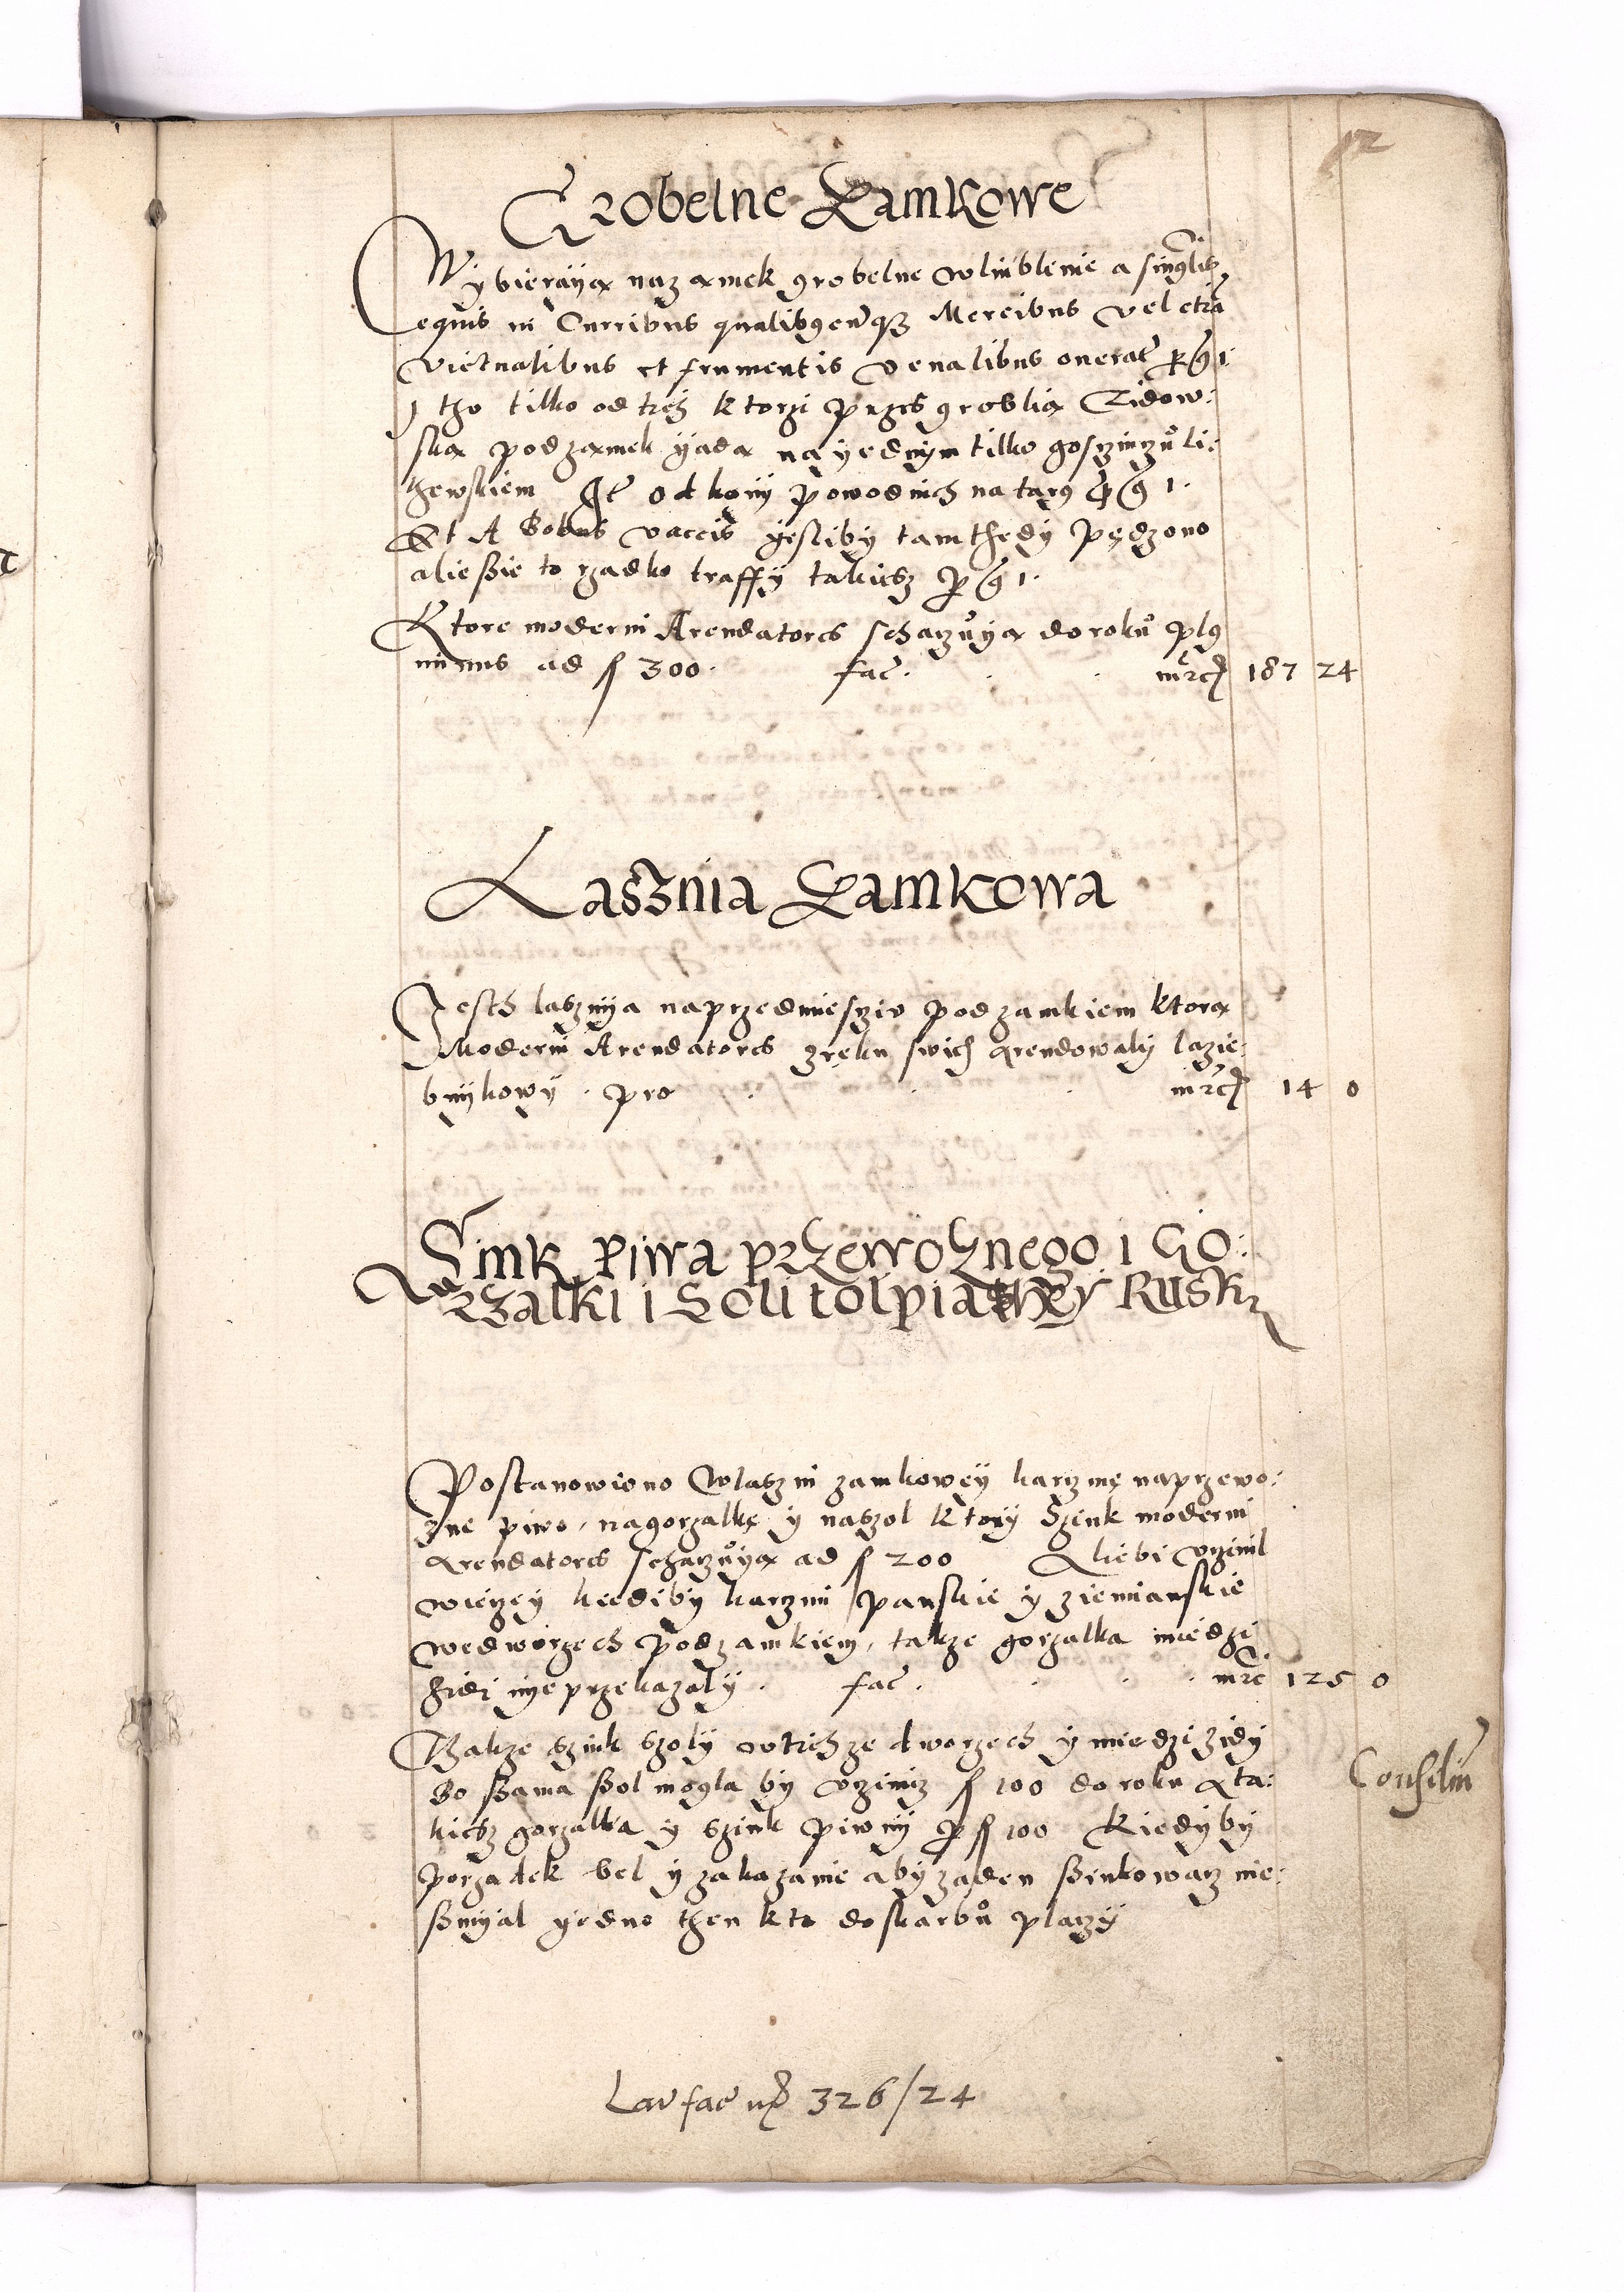 12
Grobelne Zamkowe
Wybieraÿą na zamek grobelne w Liublenie a singulis
equis in Curribus qualibgcūqz Mercibus vel etiā
victualibus et frumentis venalibus onerat̃ p g 1.
J tho tilko od tich ktorzi przes groblią Zidow:
ską pod zamek ÿadą na ÿednym tilko gosczinczů li:
It̃ od konÿ powodnich na targ p g 1.
Et A Bobus vaccis ÿesliby tamthedy pędzono
alie ßie to rzadko traffÿ takiesz p g 1.
Ktore moderni Arendatores schaczuÿą do roků plg
minus ad fl 300. fac̃. mrc 187 24
Lasznia Zamkowa
Jesth lasznÿa na przedmiesziv pod zamkiem ktorą
Moderni Arendatores z ręku swich arendowalÿ lazie:
bnÿkowÿ. pro mrc 14 0
Szink piwa przewoznego i Go:
rzalki i Soli tolpia Ruski
Postanowiono w laszni zamkoweÿ karczmę na przewo:
zne piwo, na gorzalkę ÿ na szol ktorÿ Szink moderni
Arendatores schaczuÿą ad fl 200 A liebi vczinil
wieczeÿ kiedibÿ karczmi panskie ÿ ziemianskie
we dworzech pod zamkiem, takze gorzalka miedzi
zidi nÿe przekazalÿ. fac̃. mrc 125 0
Takze szink szolÿ w tich ze dworzech ÿ miedzi zidÿ
Bo ßama ßol moglą by vczinicz fl 100 do roku A ta:
kiesz gorzalka ÿ szink piwnÿ p fl 100 Kiedÿ by
porzadek bel ÿ zakazanie abÿ zaden ßinkowacz nie:
ßmÿal ÿedno then kto do skarbů placzÿ
Consiliū
Lat̃ fac̃ mr 326/24